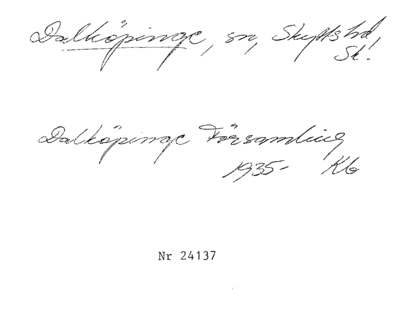 Dalköpinge, sn, Skytts hd,
Sk.
Dalköpinge Församling
1935- Kb
Nr 24137